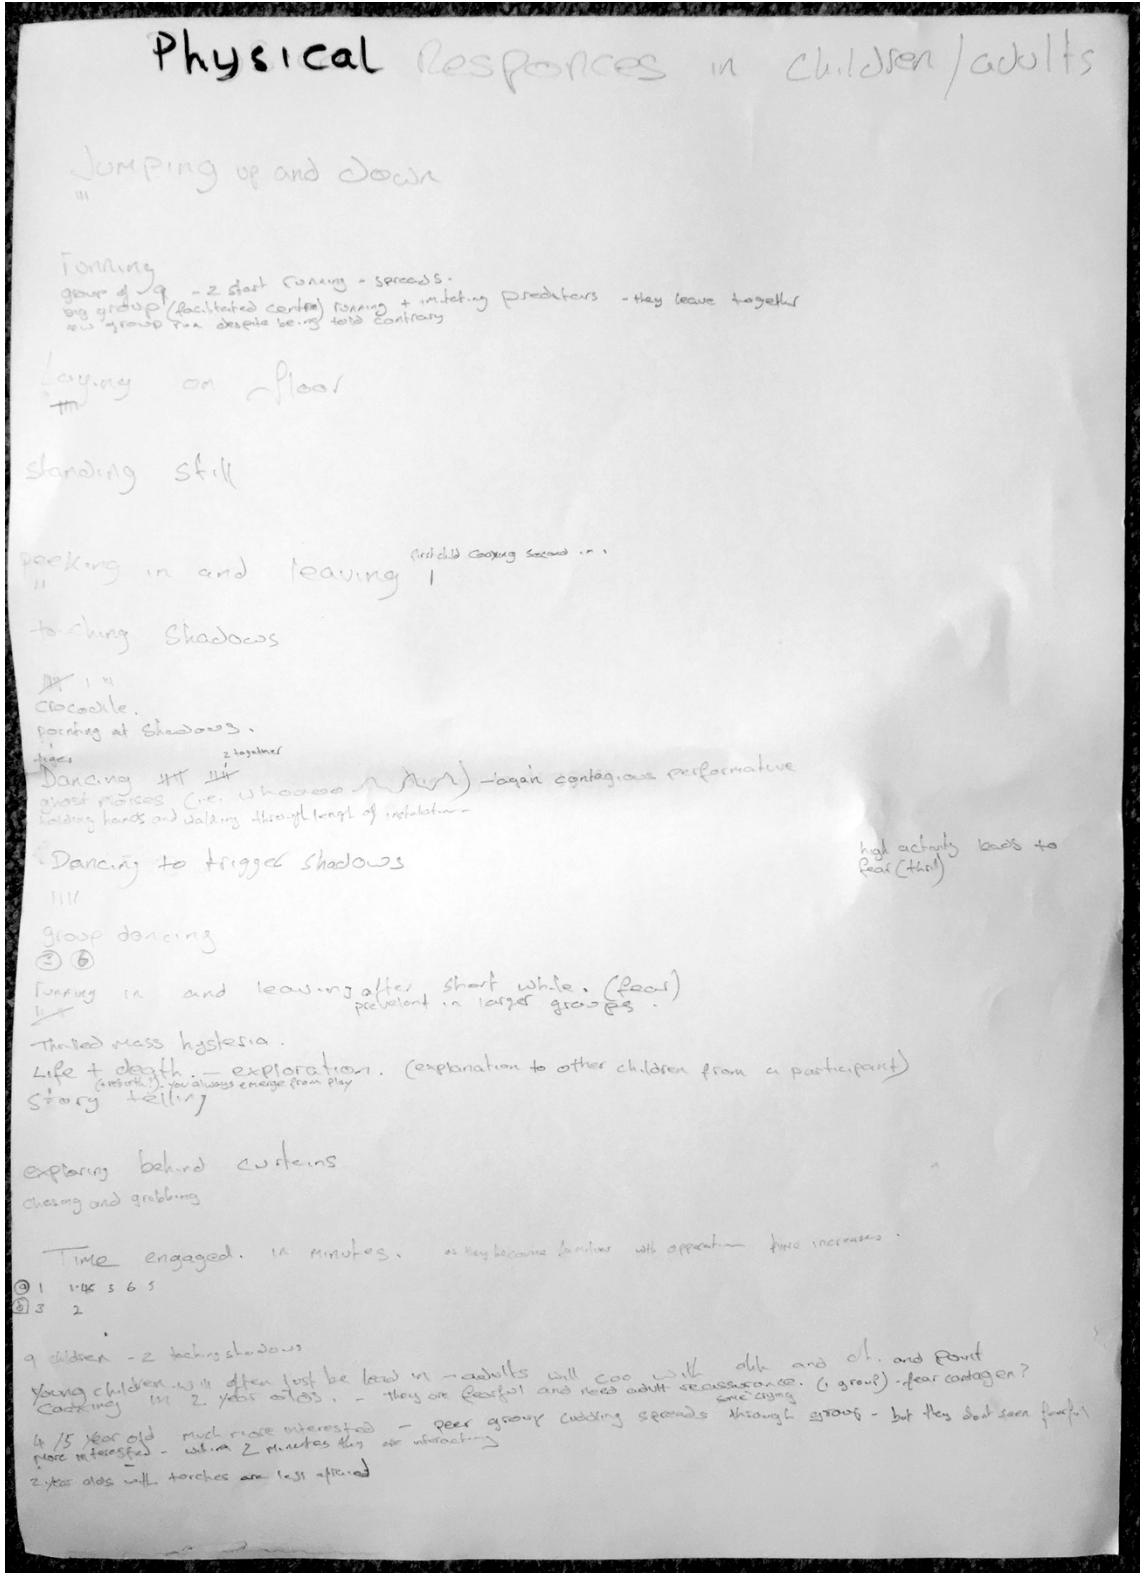 Physical Responces in children/adults
Jumping up and down
III
running
group of ~9 - 2 start running - spreads.
big group (facilitated centre) running + imitating predators - they leave together
new group run despite being told contrary
Laying on floor
standing still
first child coaxing second in.
peeking in and leaving I
II
touching Shadows
crocodile.
pointing at shadows.
tiger
2 together
Dancing - again contagious performative
ghost noises (i.e. whoooo
holding hands and walking through length of installation
Dancing to trigger shadows
high activity leads to
fear (thrill)
IIII
group dancing
3 6
running in and leaving after short while. (fear)
prevelant in larger groups.
Thrilled mass hysteria.
Life + death. - exploration. (explanation to other children from a participant)
(rebirth?) - you always emerge from play
story telling
exploring behind curtains
chasing and grabbing
Time engaged. in minutes. as they become familiar with operation time increases.
a 1 1.45 3 6 5
b 3 2
9 children - 2 touching shadows
Young children will often just be lead in - adults will coo with ahh and oh. and point
coaxing in 2 year olds. - they are fearful and need adult reassurance. (1 group) - fear contagen?
some crying
4/5 year old much more interested - peer group cuddling spreads through group - but they dont seem fearful
more interested - within 2 minutes they are interacting
2 year olds with torches are less afraid